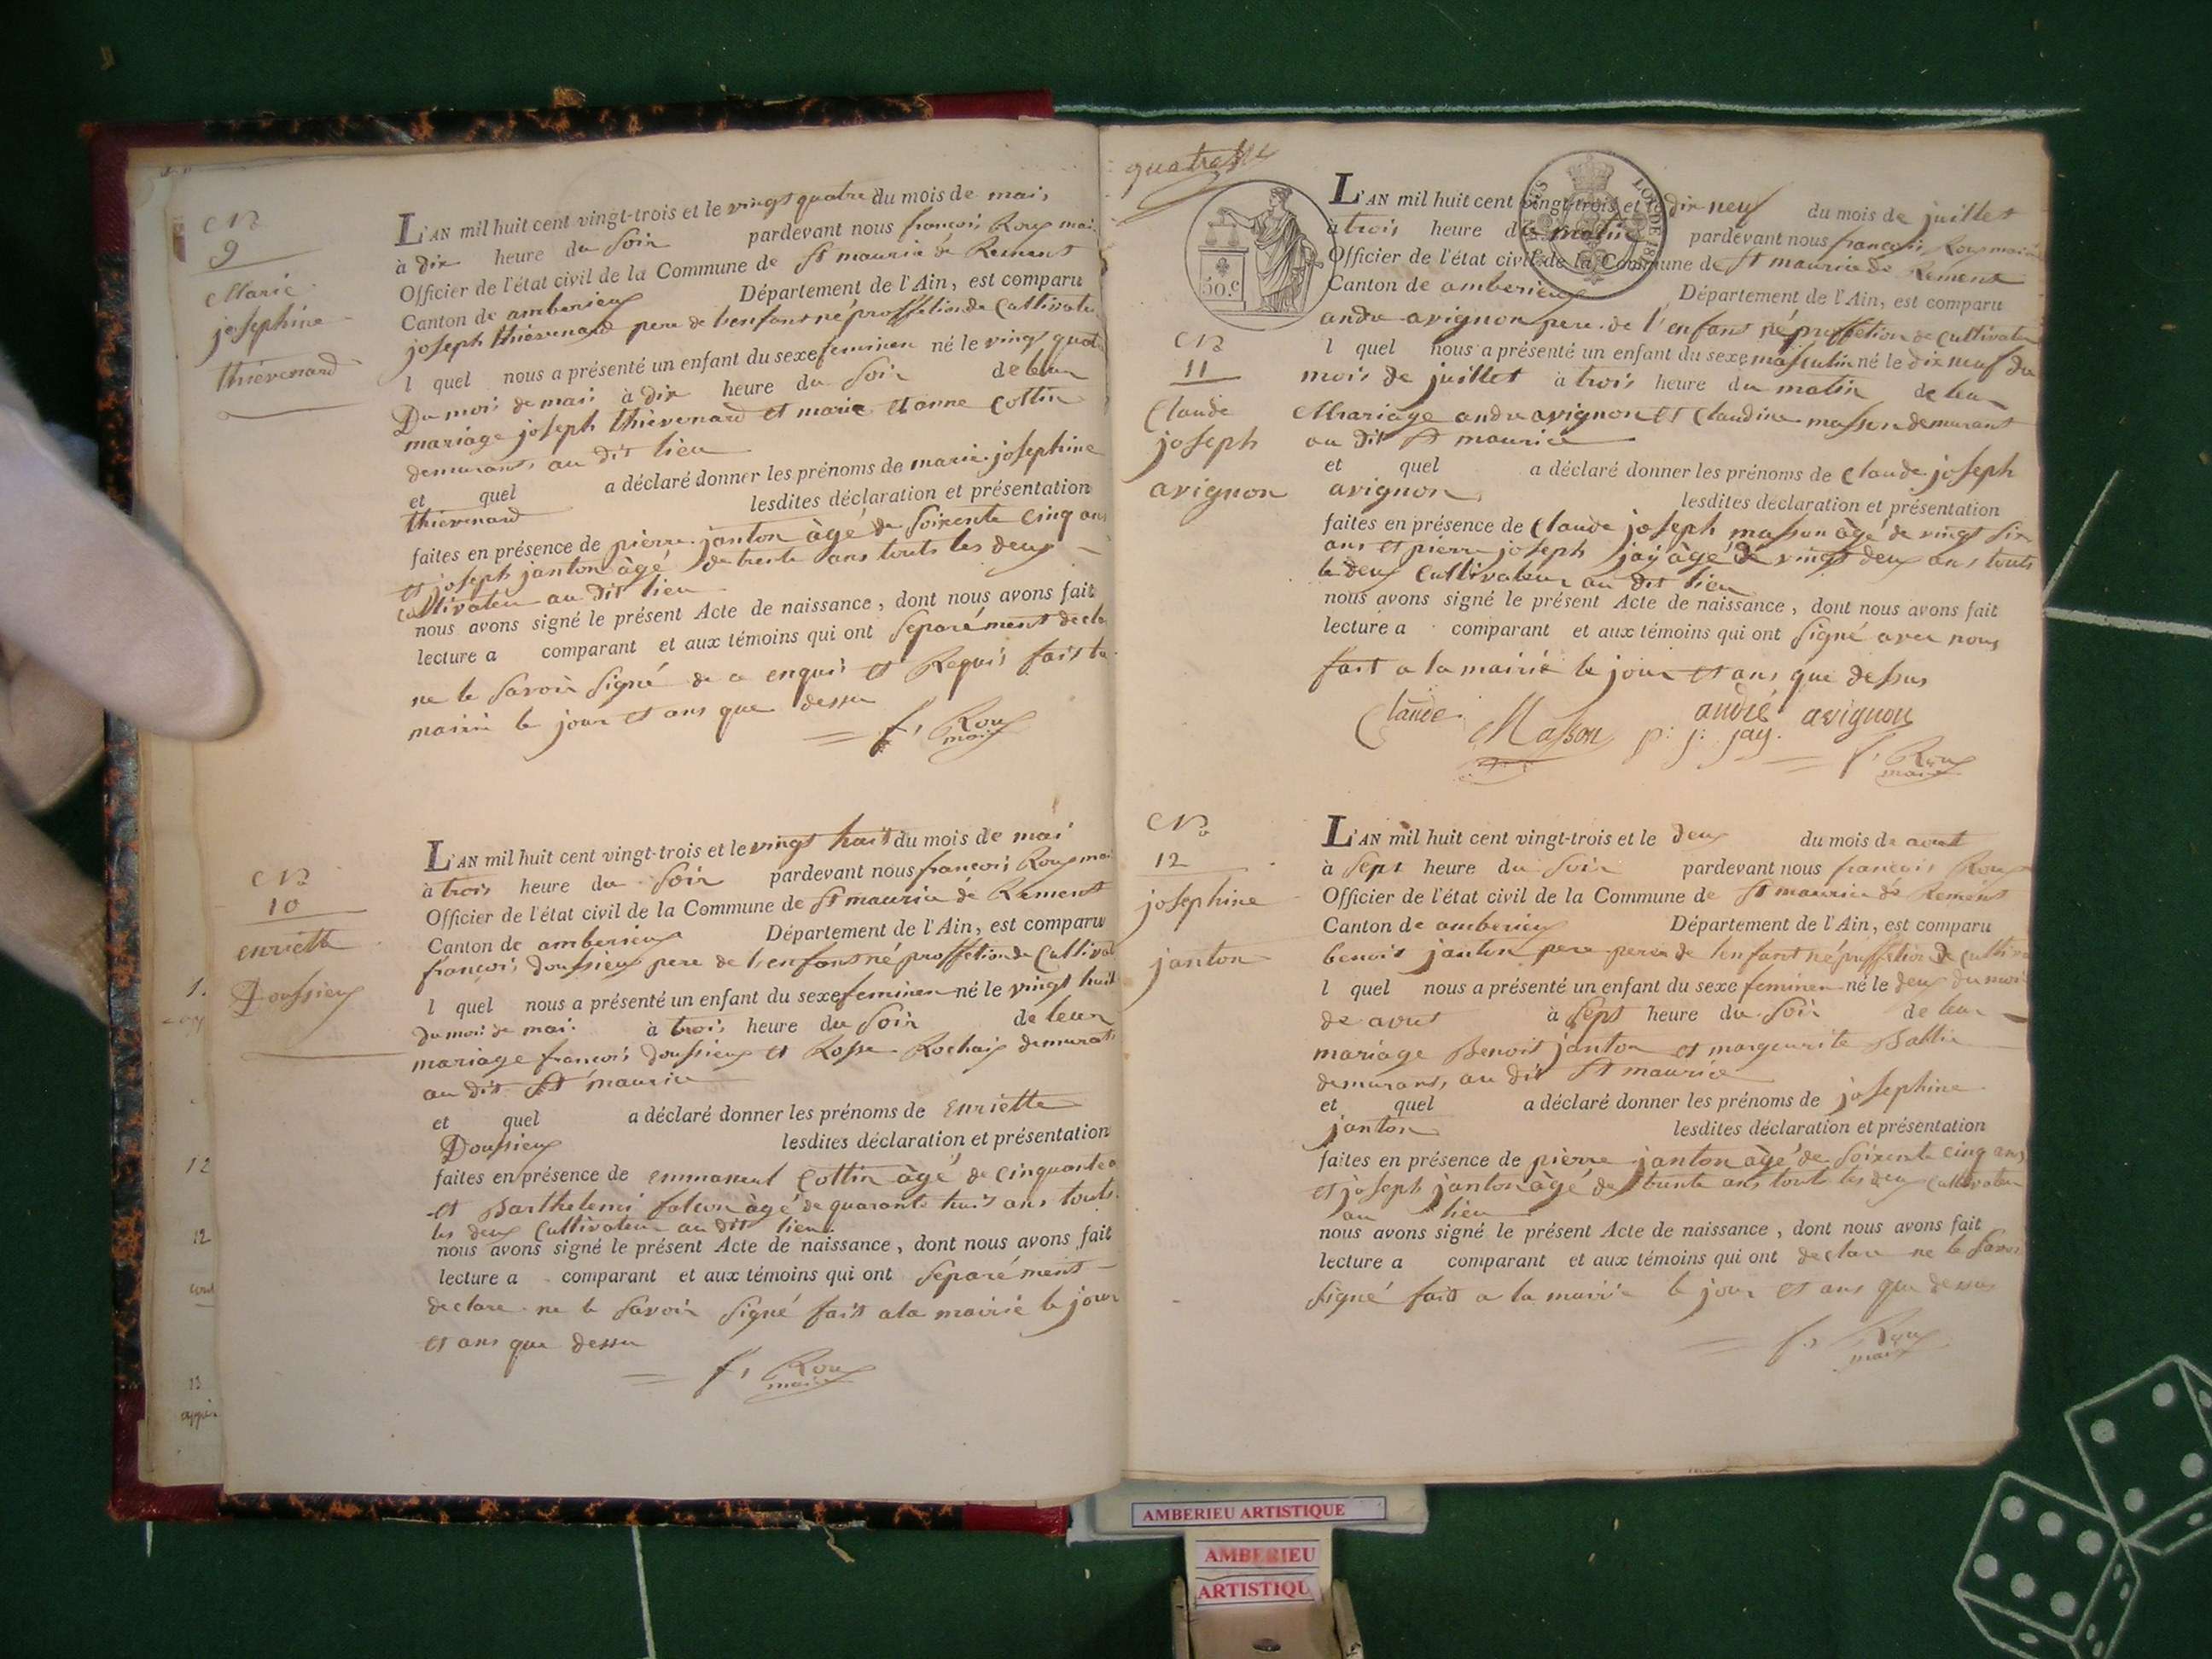 No
9
Marie
josephine
thievenard
L'AN mil huit cent vingt-trois et le vingt quatre du mois de mai,
à dix heure du soir pardevant nous françois Roux mai
Officier de l'état civil de la Commune de St maurice de Remens
Canton de amberieux Département de l'Ain, est comparu
joseph thievenard pere de l'enfant né proffetion de Cultivateu
l quel nous a présenté un enfant du sexe feminen né le vingt quat
Du mois de mai à dix heure du soir de leur
mariage joseph thievenard et marie et anne Cottin
demurants au dit lieu
et quel a déclaré donner les prénoms de marie josephine
thievenard lesdites déclaration et présentation
faites en présence de pierre janton àgé de soixente cinq ans
et joseph janton àgé de trente ans touts les deux
Cultivateu au dit lieu
nous avons signé le présent Acte de naissance, dont nous avons fait
lecture a comparant et aux témoins qui ont separément decla
ne le savoir signé de a enquis et Requis fait la
mairie le jour et ans que dessu
f, Roux
maire
No
10
enriette
Doussieux
L'AN mil huit cent vingt-trois et le vingt huit du mois de mai
à trois heure du soir pardevant nous françois Roux mai
Officier de l'état civil de la Commune de St maurice de Remens
Canton de amberieux Département de l'Ain, est comparu
françois Doussieux pere de l'enfant né proffetion de Cultivat
l quel nous a présenté un enfant du sexe feminen né le vingt huit
du moi de mai à trois heure du soir de leur
mariage françois Doussieux et Rosse Rochaix demurats
au dit St maurice
et quel a déclaré donner les prénoms de enriette
Doussieux lesdites déclaration et présentation
faites en présence de emmanuel Cottin àgé de cinquante a
et Barthelemi falcon àgé de quarante huit ans touts
les deux Cultivateur au dit lieu
nous avons signé le présent Acte de naissance, dont nous avons fait
lecture a comparant et aux témoins qui ont separément
declare ne le savoir signé fait a la mairie le jour
et ans que dessu
f, Roux
maire
12
12
13
quatre
50.c
LOI DE 18
L'AN mil huit cent vingt-trois et le dix neuf du mois de juillet
à trois heure du matin pardevant nous françois Roux maire
Officier de l'état civil de la Commune de St maurice de Remens
Canton de amberieux Département de l'Ain, est comparu
andre avignon pere de l'enfant né proffetion de Cultivateu
No
11
Claude
joseph
avignon
l quel nous a présenté un enfant du sexe masculin né le dix neuf du
mois de juillet à trois heure du matin de leur
Mariage andre avignon et Claudine masson demurant
au dit St maurice
et quel a déclaré donner les prénoms de Claude joseph
avignon lesdites déclaration et présentation
faites en présence de Claude joseph masson àgé de vingt six
ans et pierre joseph jay àgé de vingt deux ans touts
le deux Cultivateur au dit lieu
nous avons signé le présent Acte de naissance, dont nous avons fait
lecture a comparant et aux témoins qui ont signé avec nous
fait a la mairie le jour et ans que dessus
Claude Masson p: j: jay. andré avignon
f, Roux
maire
No
12
josephine
janton
L'AN mil huit cent vingt-trois et le deux du mois de aout
à sept heure du soir pardevant nous françois Roux
Officier de l'état civil de la Commune de St maurice de Remens
Canton de amberieux Département de l'Ain, est comparu
benoit janton pere de l'enfant né proffetion de cultiva
l quel nous a présenté un enfant du sexe feminen né le deux du moi
de aout à sept heure du soir de leur
mariage Benoit janton et margeurite Ballie
demurants au dit St maurice
et quel a déclaré donner les prénoms de josephine
janton lesdites déclaration et présentation
faites en présence de pierre janton àgé de soixente cinq ans
et joseph janton àgé de trente ans touts les deux Cultivateu
au lieu
nous avons signé le présent Acte de naissance, dont nous avons fait
lecture a comparant et aux témoins qui ont declare ne le savoir
signé fait a la mairie le jour et ans que dessus
f, Roux
maire
AMBERIEU ARTISTIQUE
AMBERIEU
ARTISTIQU